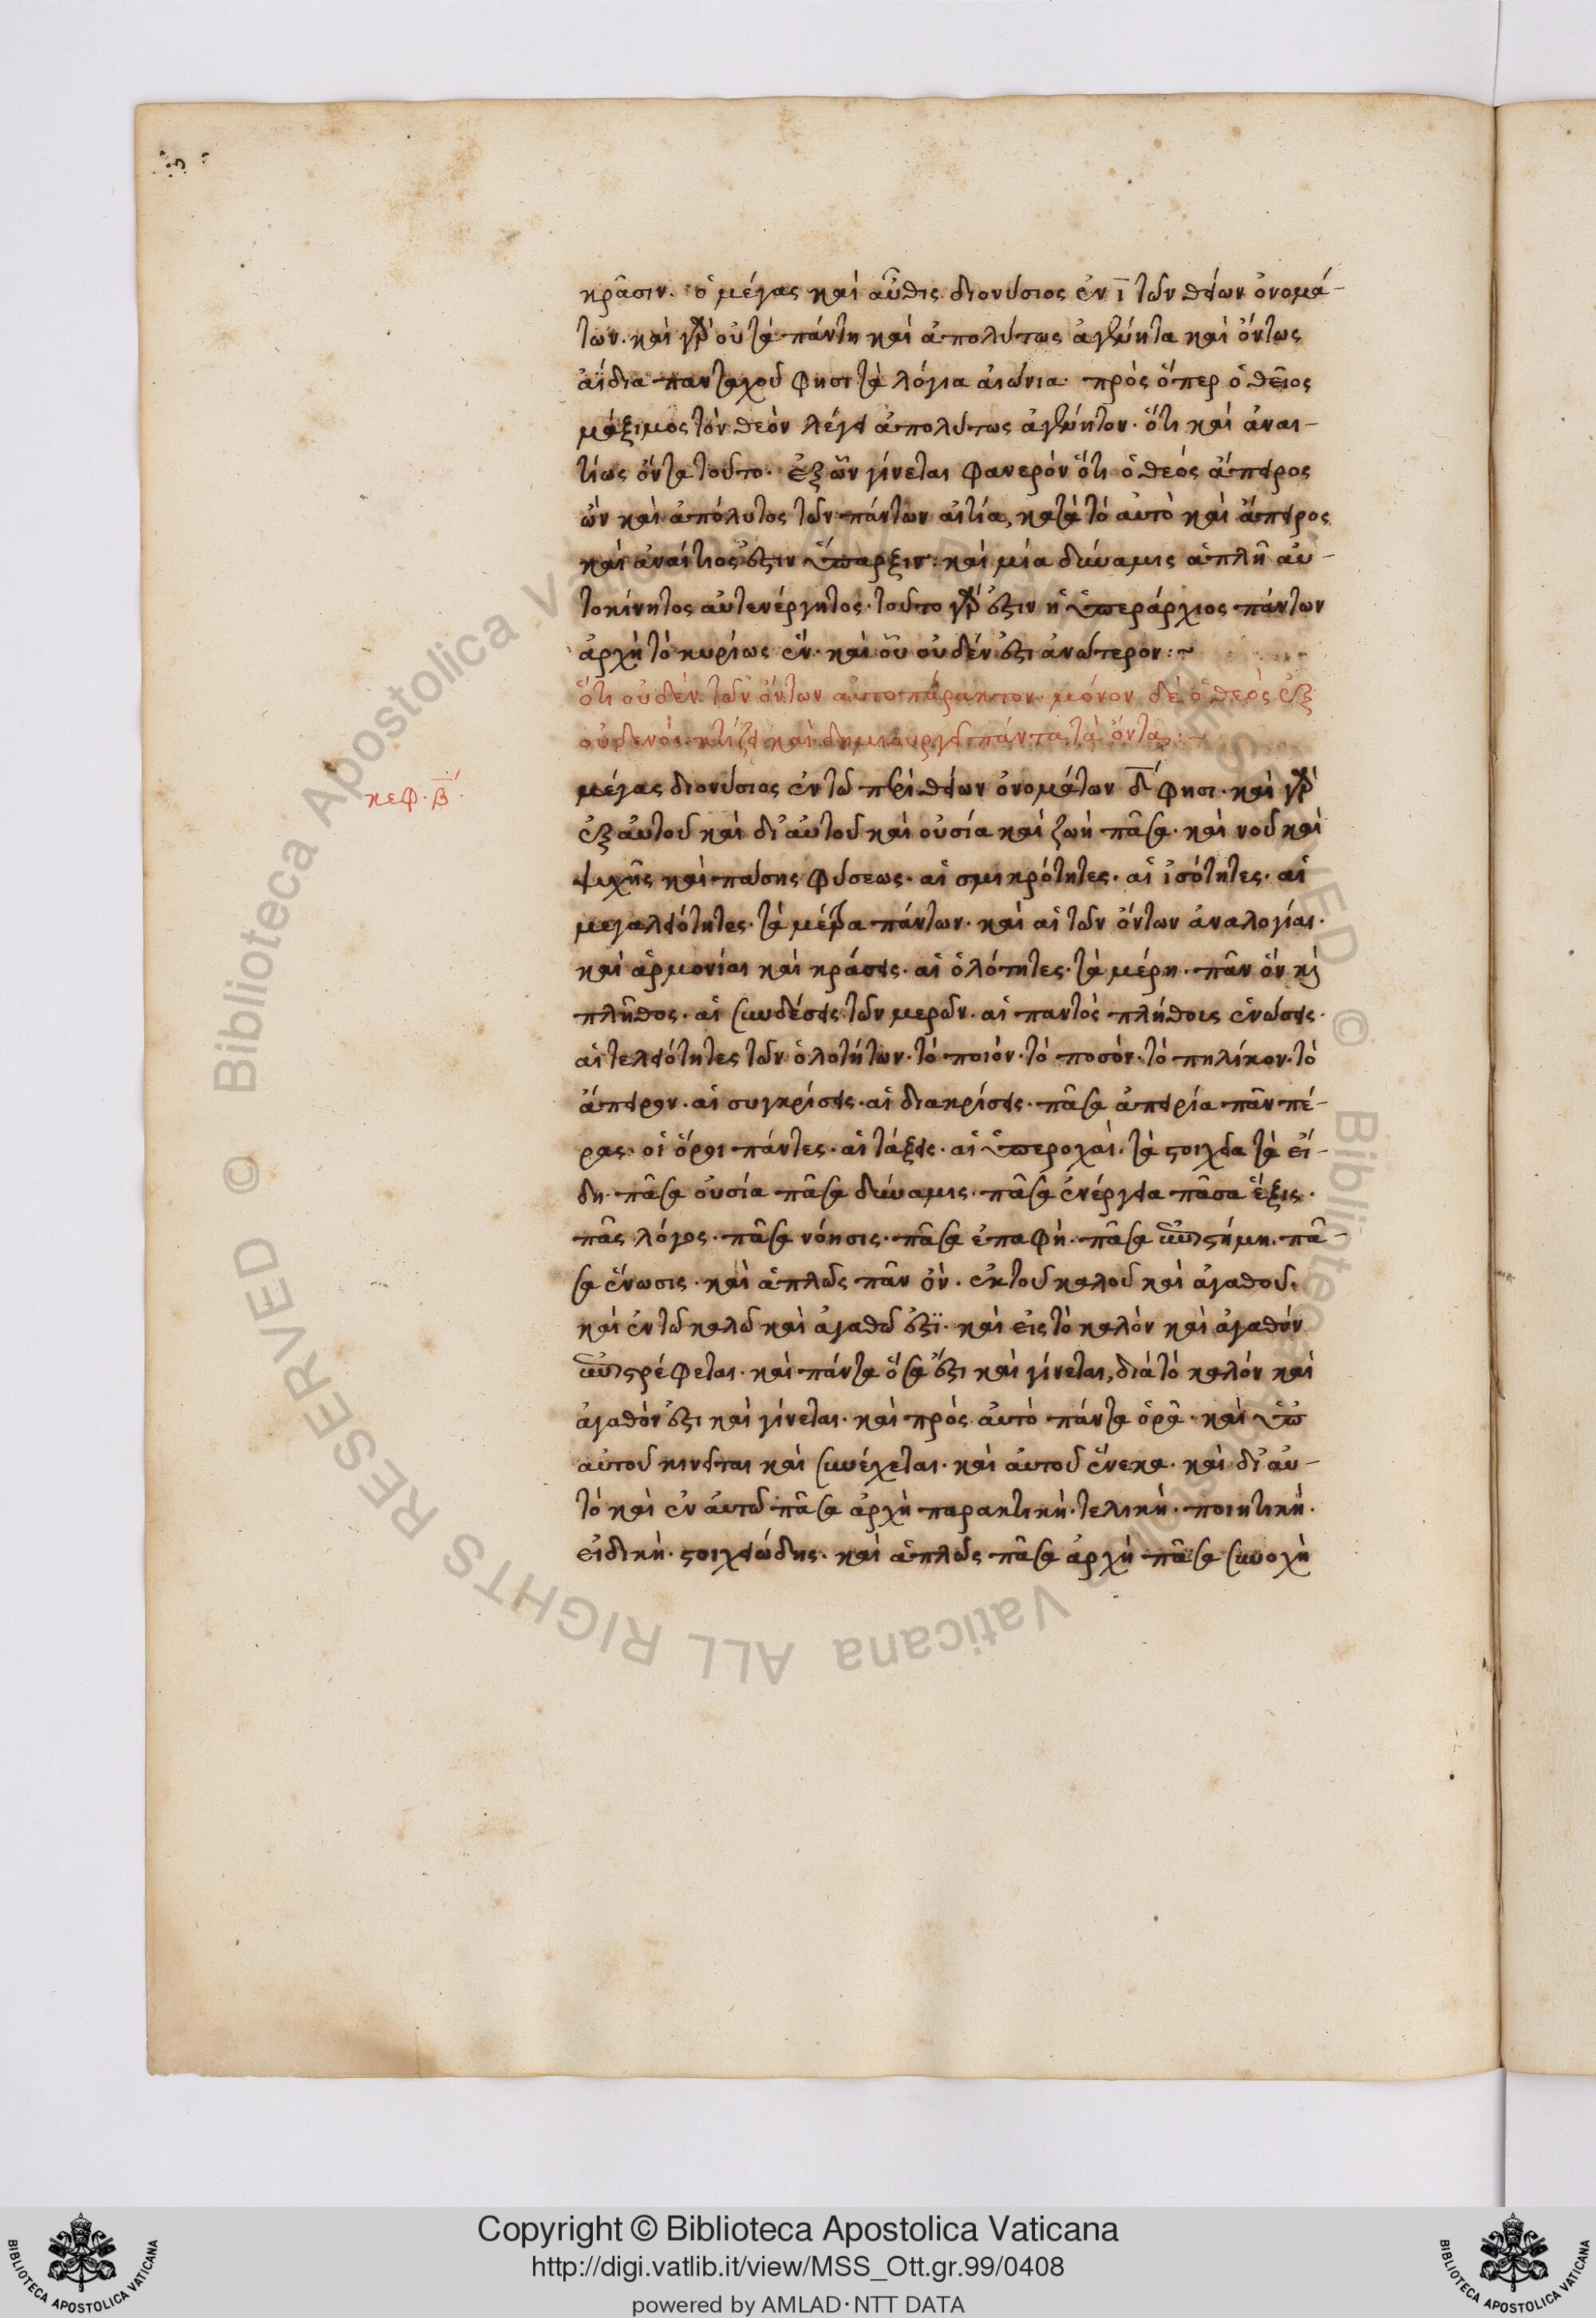 κρᾶσιν. ὁ μέγας καὶ αὖθις διονύσιος ἐν ι̅ τῶν θείων ὀνομά-
των. καὶ γὰρ οὐ τὰ πάντη καὶ ἀπολύτως ἀγένητα καὶ ὄντως
ἀΐδια πανταχοῦ φησὶ τὰ λόγια αἰώνια. πρὸς ὅπερ ὁ θεῖος
μάξιμος τὸν θεὸν λέγει ἀπολύτως ἀγένητον. ὅτι καὶ ἀναι-
τίως ὄντα τοῦτο. ἐξ ὧν γίνεται φανερὸν ὅτι ὁ θεὸς ἄπειρος
ὢν καὶ ἀπόλυτος τῶν πάντων αἰτία, κατὰ τὸ αὐτὸ καὶ ἄπειρος
καὶ ἀναίτιος ἐστιν ὕπαρξιν. καὶ μία δύναμις ἁπλῆ αὐ-
τοκίνητος αὐτενέργητος. τοῦτο γάρ ἐστιν ἡ ὑπεράρχιος πάντων
ἀρχὴ τὸ κυρίως ἕν. καὶ οὗ οὐδέν ἐστι ἀνώτερον:~
ὅτι οὐδὲν τῶν ὄντων αὐτοπάρακτον. μόνον δὲ ὁ θεὸς ἐξ
οὐδενὸς κτίζει καὶ δημιουργεῖ πάντα τὰ ὄντα:~
κεφ. β̅.
μέγας διονύσιος ἐν τῶ περὶ θείων ὀνομάτων δ̅ φησι. καὶ γὰρ
ἐξ αὐτοῦ καὶ δι' αὐτοῦ καὶ οὐσία καὶ ζωὴ πᾶσα. καὶ νοῦ καὶ
ψυχῆς καὶ πάσης φύσεως. αἱ σμικρότητες. αἱ ἰσότητες. αἱ
μεγαλειότητες. τὰ μέτρα πάντων. καὶ αἱ τῶν ὄντων ἀναλογίαι.
καὶ ἁρμονίαι καὶ κράσεις. αἱ ὁλότητες. τὰ μέρη. πᾶν ὃν κὶ
πλῆθος. αἱ συνδέσεις τῶν μερῶν. αἱ παντὸς πλήθους ἑνώσεις.
αἱ τελειότητες τῶν ὁλοτήτων. τὸ ποιὸν. τὸ ποσὸν. τὸ πηλίκον. τὸ
ἄπειρον. αἱ συγκρίσεις. αἱ διακρίσεις. πᾶσα ἀπειρία πᾶν πέ-
ρας. οἱ ὅροι πάντες. αἱ τάξεις. αἱ ὑπεροχαί. τὰ στοιχεῖα τὰ εἴ-
δη. πᾶσα οὐσία πᾶσα δύναμις. πᾶσα ἐνέργεια πᾶσα ἕξις.
πᾶς λόγος. πᾶσα νόησις. πᾶσα ἐπαφή. πᾶσα ἐπιστήμη. πᾶ-
σα ἕνωσις. καὶ ἁπλῶς πᾶν ὂν. ἐκ τοῦ καλοῦ καὶ ἀγαθοῦ.
καὶ ἐν τῶ καλῶ καὶ ἀγαθῶ ἐστϊ. καὶ εἰς τὸ καλὸν καὶ ἀγαθὸν
ἐπιστρέφεται. καὶ πάντα ὅσα ἔστι καὶ γίνεται, διὰ τὸ καλὸν καὶ
ἀγαθὸν ἔστι καὶ γίνεται. καὶ πρὸς αὐτὸ πάντα ὁρᾶ. καὶ ὑπ'
αὐτοῦ κινεῖται καὶ συνέχεται. καὶ αὐτοῦ ἕνεκα. καὶ δι' αὐ-
τὸ καὶ ἐν αὐτῶ πᾶσα ἀρχὴ παρακτικὴ. τελικὴ. ποιητικὴ.
εἰδικὴ. στοιχειώδης. καὶ ἁπλῶς πᾶσα ἀρχὴ πᾶσα συνοχὴ
Copyright © Biblioteca Apostolica Vaticana
http://digi.vatlib.it/view/MSS_Ott.gr.99/0408
powered by AMLAD·NTT DATA